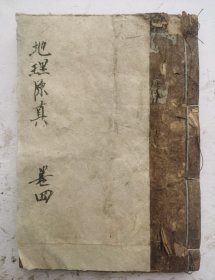 地理陈真
卷四